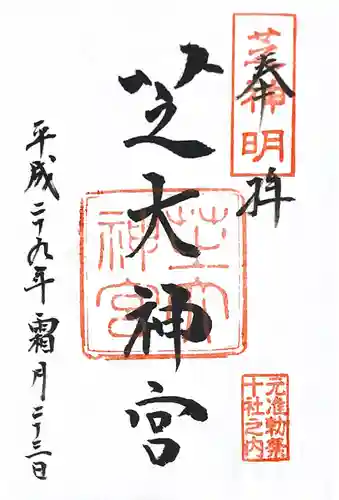 奉拝
芝神明
芝大神宮
芝大神宮
元准勅祭
十社之内
平成二十九年霜月二十三日